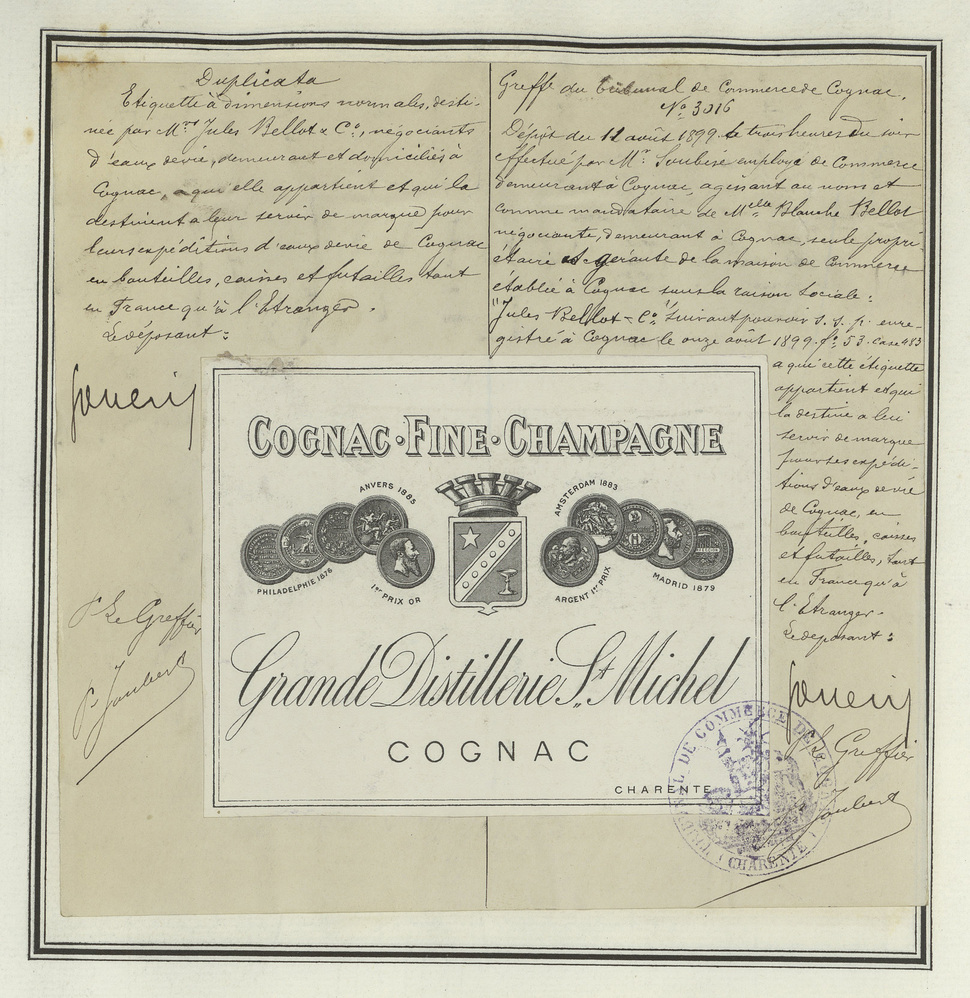 Duplicata
Etiquette à dimensions normales, desti-
née par Mrs Jules Bellot & Co, négociants
d'eaux de vie, demeurant et domiciliés à
Cognac, a qui elle appartient et qui la
destinent a leur servir de marque pour
leurs expéditions d'eaux de vie de Cognac
en bouteilles, caisses et futailles tant
en France qu'à l'Etranger.
Le déposant:
P. Le Greffier
P. Joubert
Greffe du tribunal de Commerce de Cognac.
No 3016
Dépôt du 11 août 1899. à trois heures du soir
effectué par Mr Soubise employé de Commerce
demeurant à Cognac, agissant au nom et
comme mandataire de Melle Blanche Bellot
négociante, demeurant à Cognac, seule propri-
étaire et gérante de la maison de Commerce
établie à Cognac sous la raison Sociale:
"Jules Bellot & Co" suivant pouvoir s. s. p. enre-
gistré à Cognac le onze août 1899. fo 53. Case 483
a qui cette étiquette
appartient et qui
la destine a lui
servir de marque
pour ses expédi-
tions d'eaux de vie
de Cognac, en
bouteilles, caisses
et futailles, tant
en France qu'à
l'Etranger.
Le déposant:
P. Le Greffier
Joubert
COGNAC·FINE·CHAMPAGNE
ANVERS 1885
AMSTERDAM 1883
PHILADELPHIE 1876
1er PRIX OR
ARGENT 1er PRIX
MADRID 1879
Grande Distillerie St Michel
COGNAC
CHARENTE
TRIBUNAL DE COMMERCE DE
(CHARENTE)